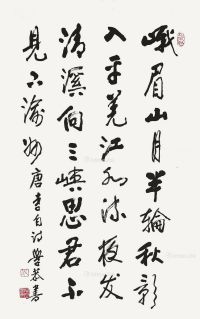 峨眉山月半輪秋影
入平羌江水流夜发
清溪向三峽思君不
見下渝州 唐李白诗 學恭書